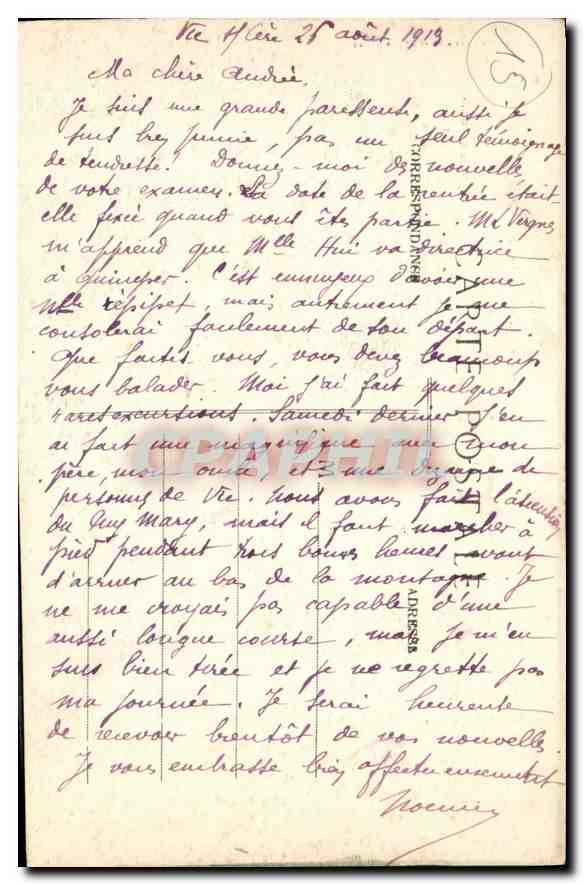 Vic s/Cère 26 août 1913.
15
Ma chère Andrée,
Je suis une grande paresseuse, aussi je
suis bien punie, pas un seul témoignage
de tendresse! Donnez-moi des nouvelles
de votre examen. La date de la rentrée était
elle fixée quand vous êtes partie. Me Vergnes
m'apprend que Mlle va directrice
à quimper. C'est ennuyeux d'avoir une
Mlle, mais autrement je me
consolerai facilement de son départ.
Que faites vous, vous devez beaucoup
vous balader. Moi j'ai fait quelques
rares excursions. Samedi dernier j'en
ai fait une magnifique avec mon
père, mon oncle, et une dizaine de
personnes de Vic. Nous avons fait l'ascension
du Puy Mary, mais il faut marcher à
pied pendant trois bonnes heures avant
d'arriver au bas de la montagne. Je
ne me croyais pas capable d'une
aussi longue course, mais je m'en
suis bien tirée et je ne regrette pas
ma journée. Je serai heureuse
de recevoir bientôt de vos nouvelles.
Je vous embrasse bien affectueusement
CARTE POSTALE
CORRESPONDANCE
ADRESSE
CPAPHIL